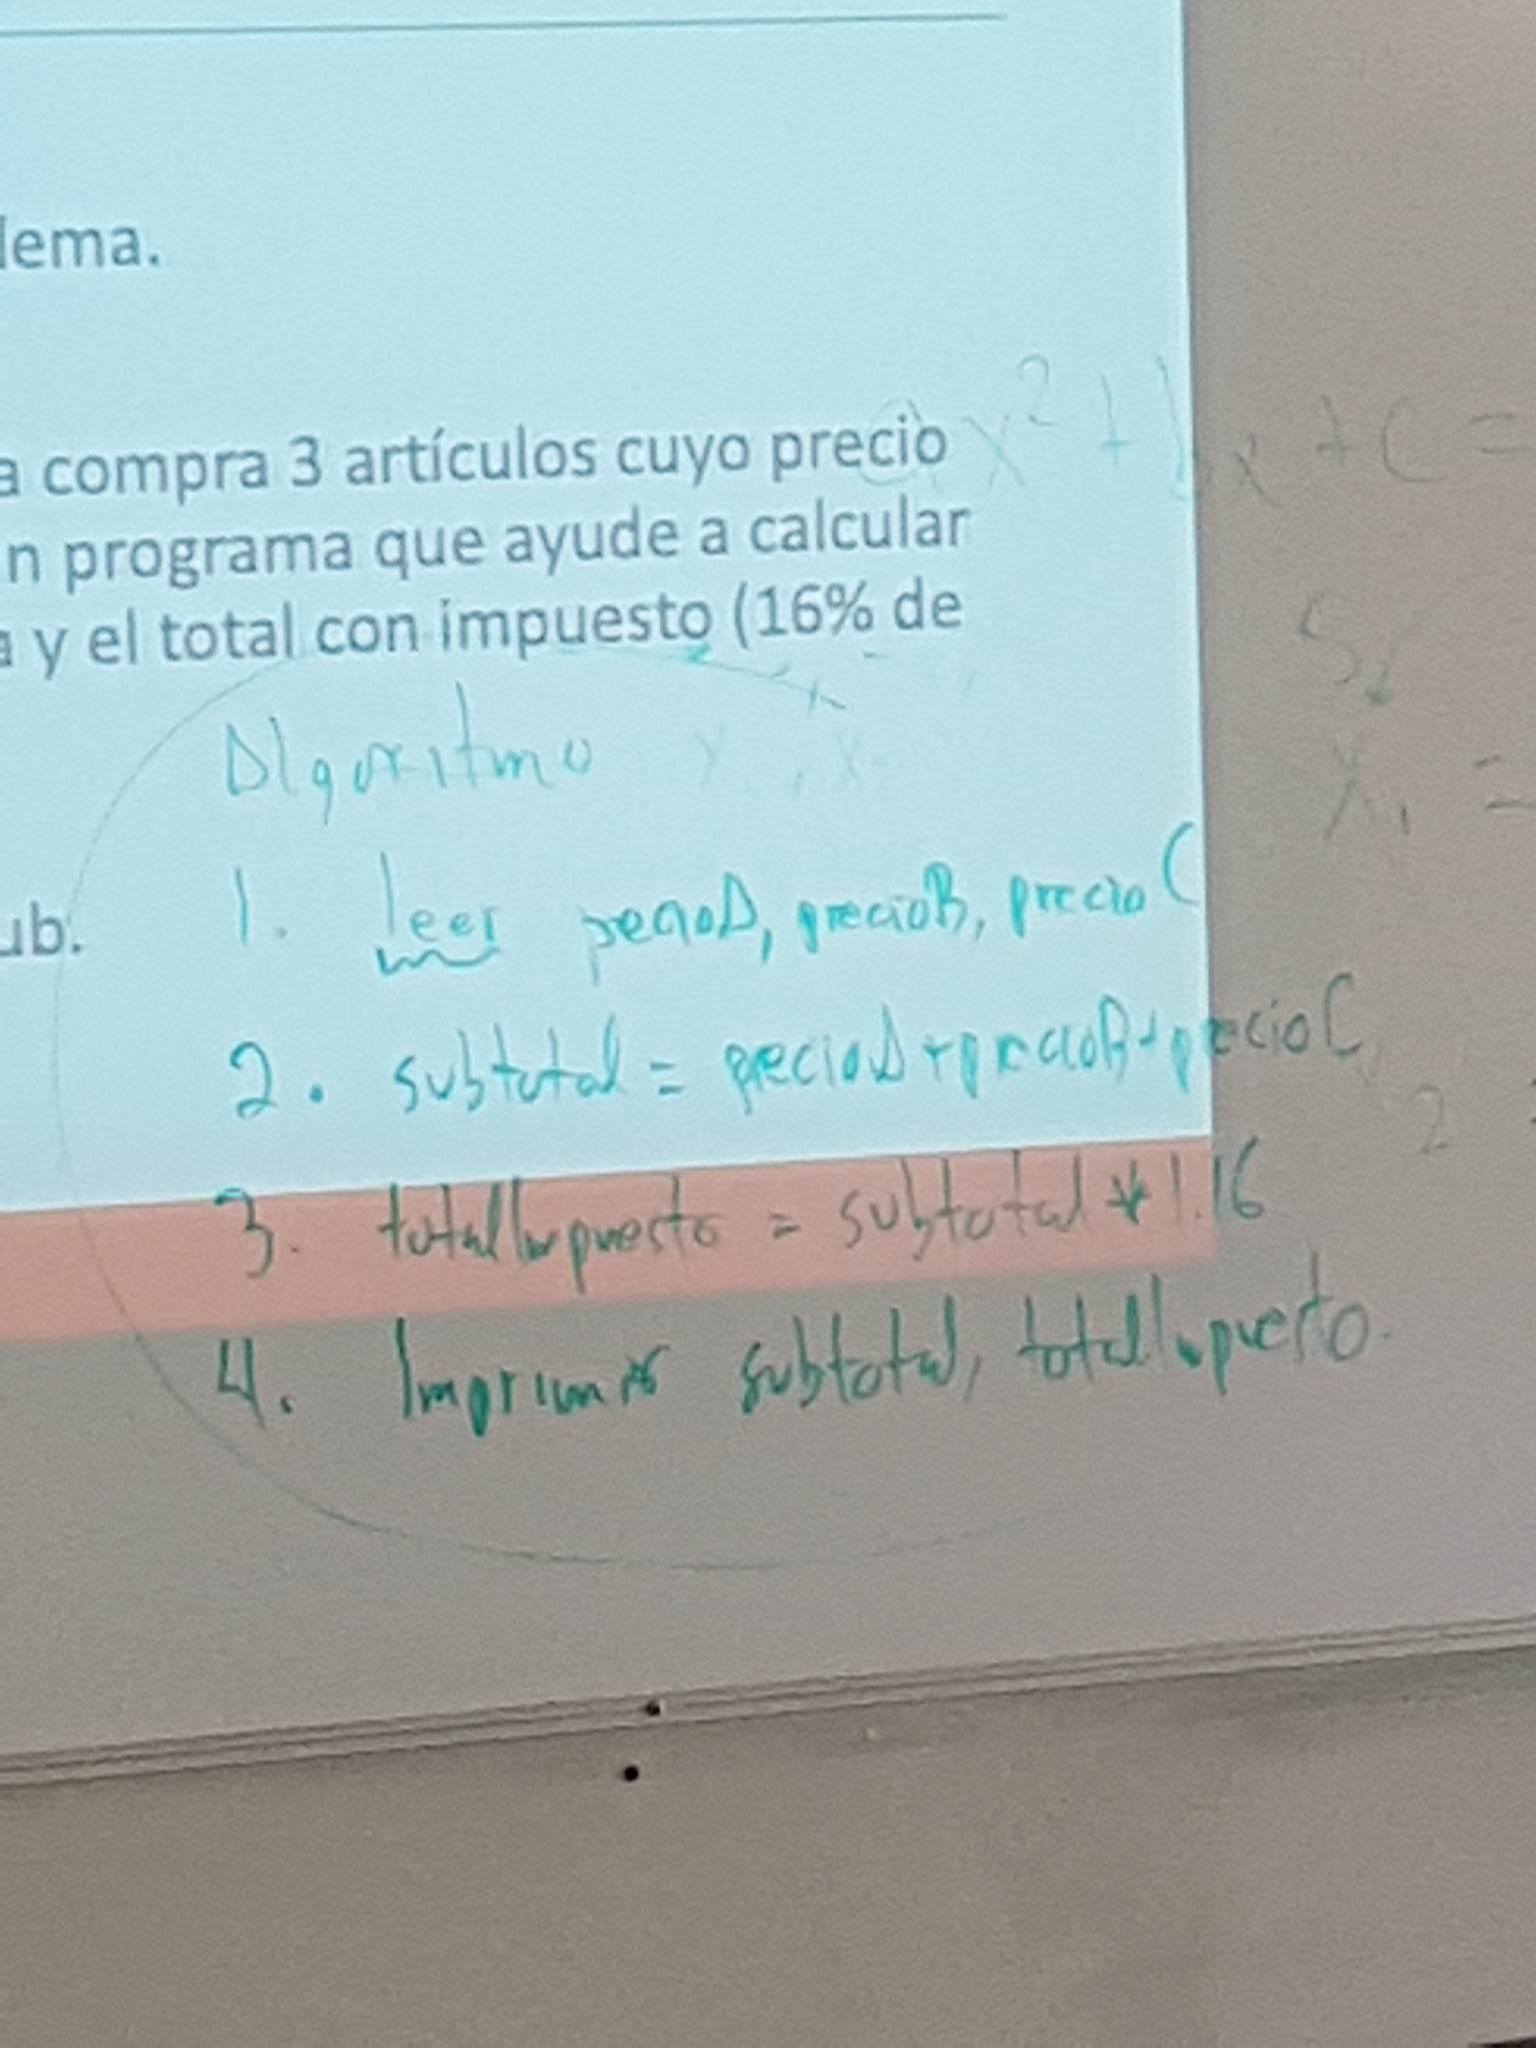 lema.
a compra 3 artículos cuyo precio
n programa que ayude a calcular
a y el total con impuesto (16% de
x² + bx + c =
Algoritmo
x₁ =
ub.
1. leer precioA, precioB, precioC
2. subtotal = precioA + precioB + precioC
2
3. totalImpuesto = subtotal * 1.16
4. Imprimir subtotal, totalImpuesto.